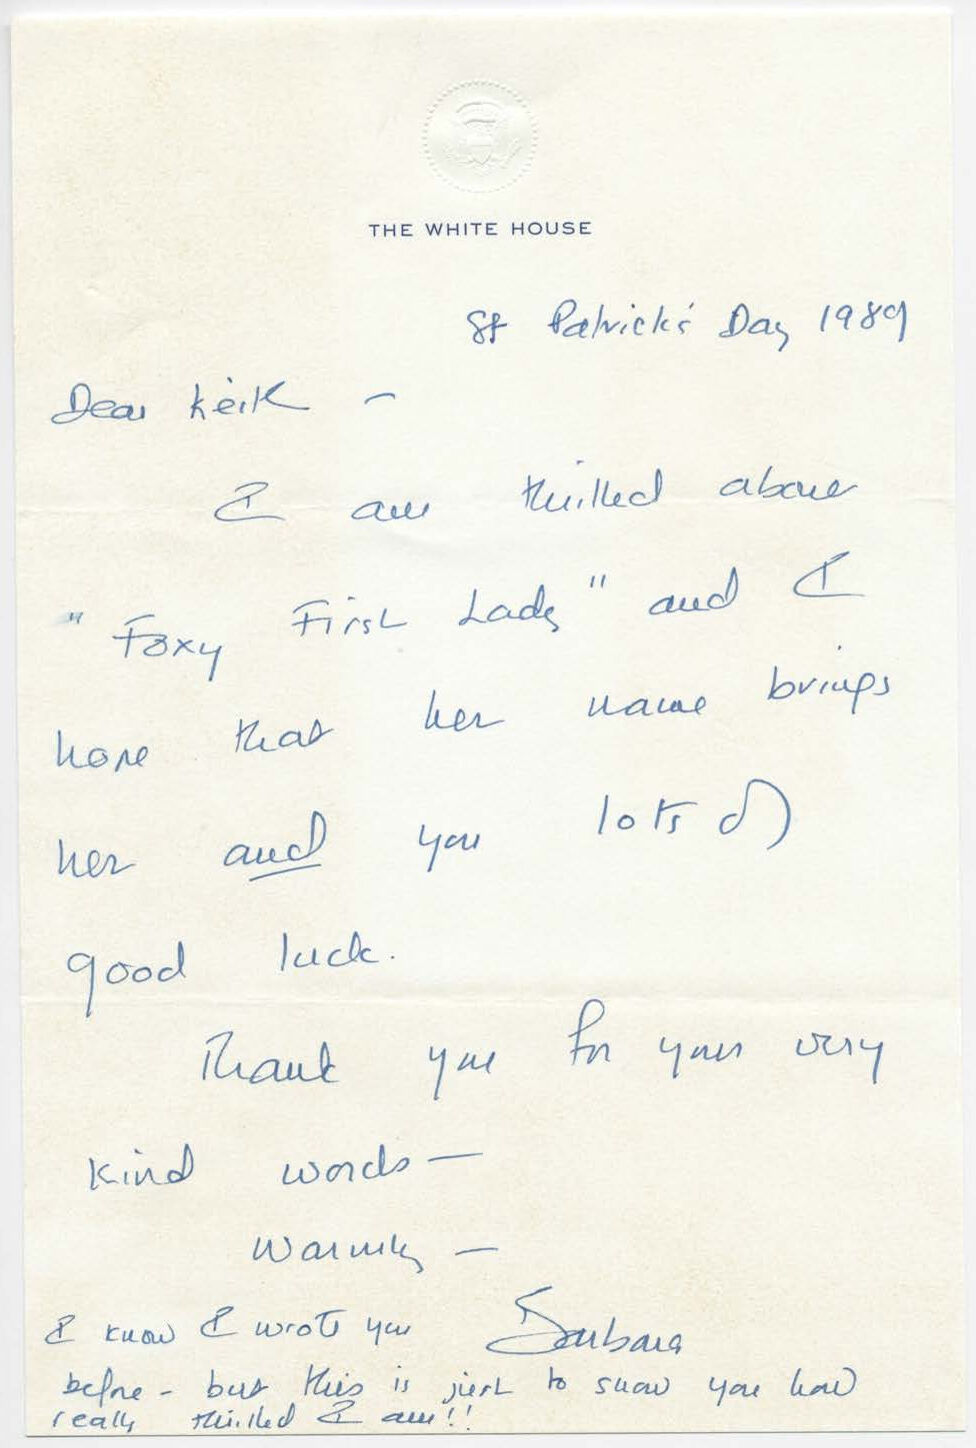 THE WHITE HOUSE
St Patrick's Day 1989
Dear Keith –
I am thrilled about
"Foxy First Lady" and I
hope that her name brings
her and you lots of
good luck.
Thank you for your very
kind words –
Warmly –
Barbara
I know I wrote you
before – but this is just to show you how
really thrilled I am!!